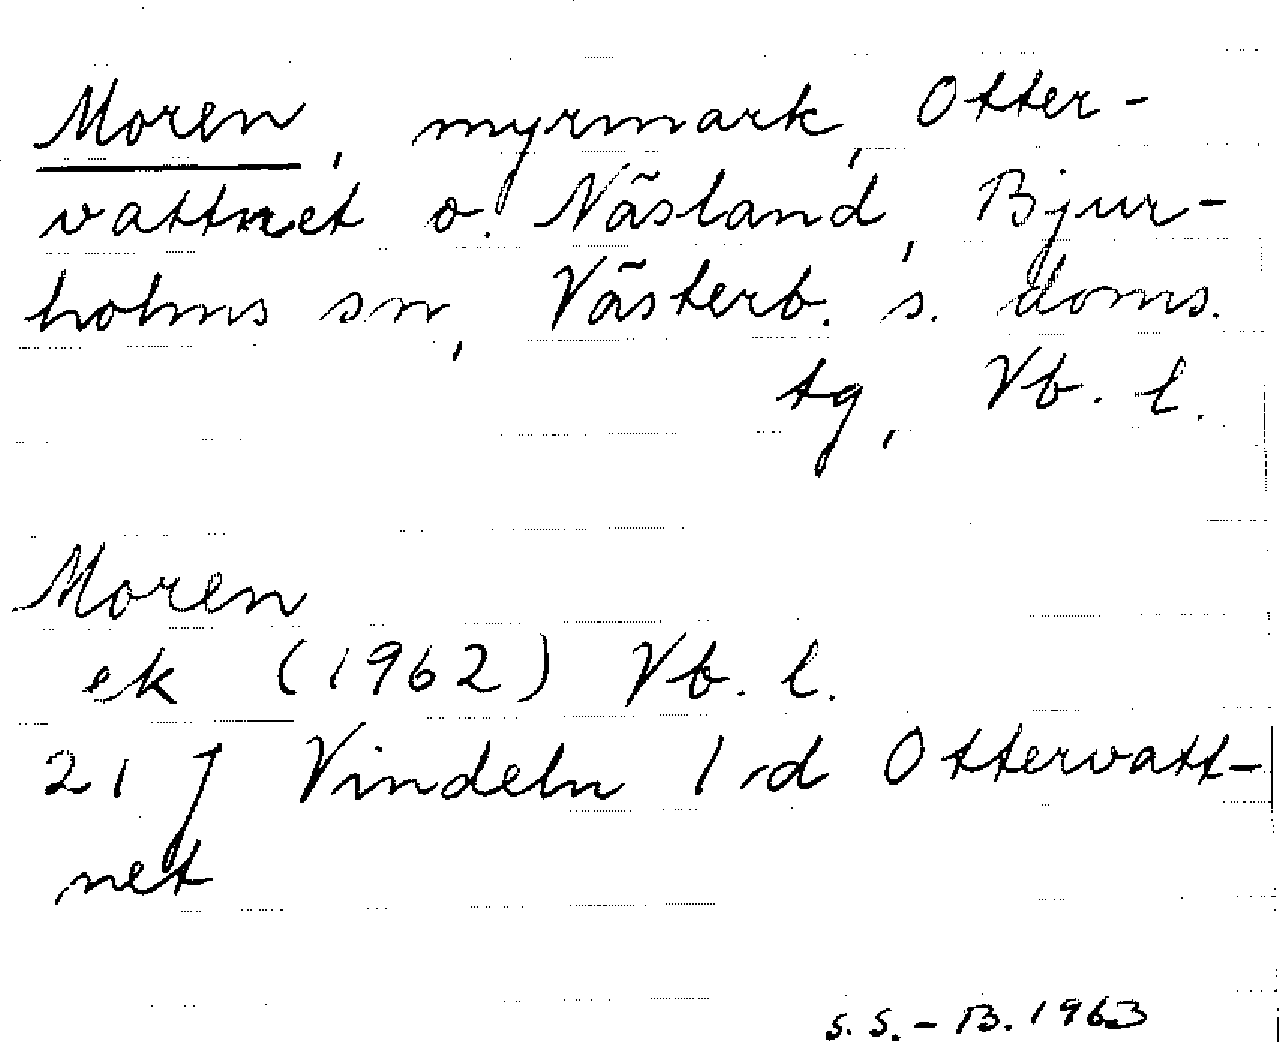 Moren, myrmark, Otter-
vattnet o. Näsland, Bjur-
holms sn, Västerb. s. doms.
tg, Vb. l.
Moren
ek (1962) Vb. l.
21 J Vindeln 1 d Ottervatt-
net
S.S. - B. 1963